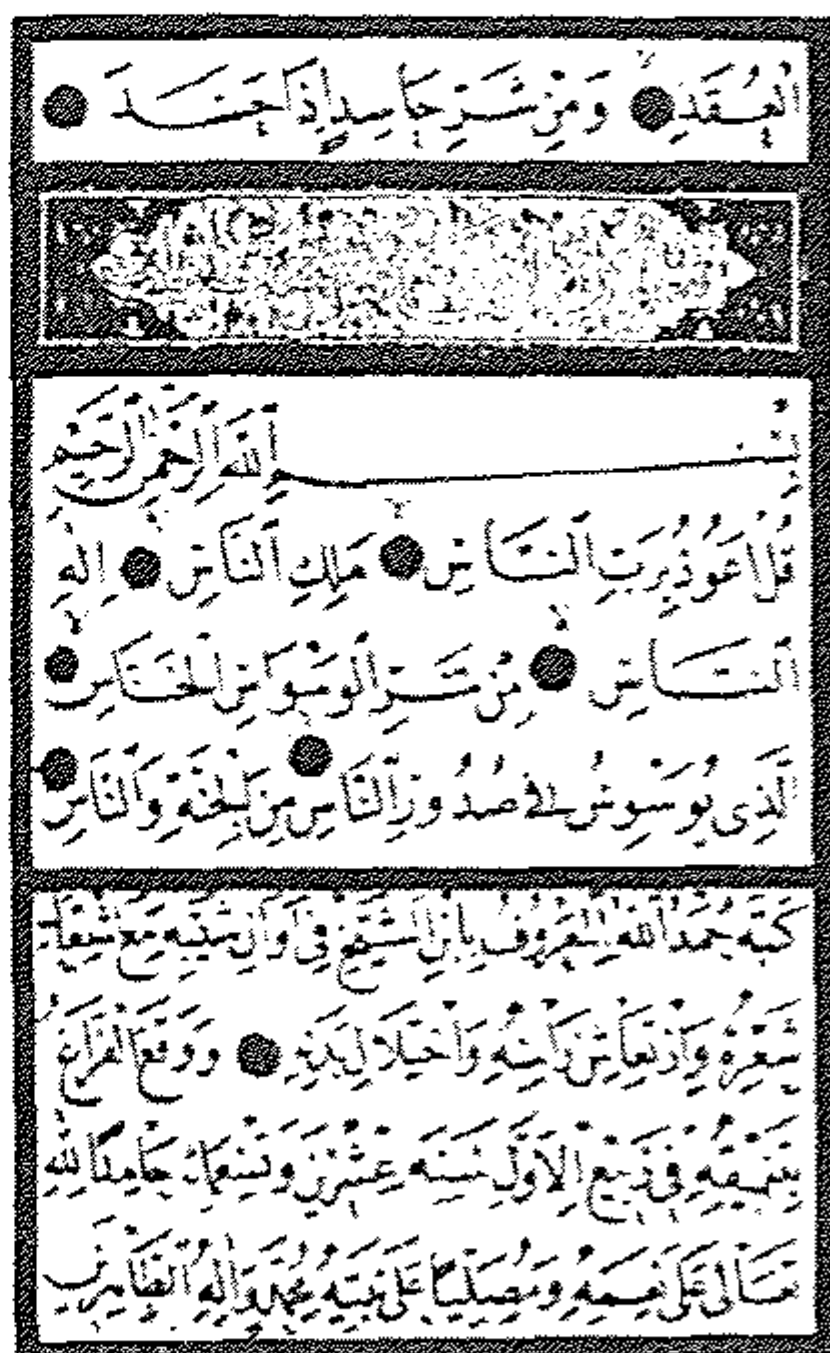 ٱلْعُقَدِ وَمِنْ شَرِّ حَاسِدٍ إِذَا حَسَدَ
بِسْمِ ٱللَّهِ ٱلرَّحْمٰنِ ٱلرَّحِيمِ
قُلْ أَعُوذُ بِرَبِّ ٱلنَّاسِ مَلِكِ ٱلنَّاسِ إِلٰهِ
ٱلنَّاسِ مِنْ شَرِّ ٱلْوَسْوَاسِ ٱلْخَنَّاسِ
ٱلَّذِي يُوَسْوِسُ فِي صُدُورِ ٱلنَّاسِ مِنَ ٱلْجِنَّةِ وَٱلنَّاسِ
كتبه حمد الله المعروف بابن الشيخ في اوان شيبه مع
شعره وارتعاش راسه واختلال بدنه ووقع الفراغ
بتنميقه في ربيع الاول سنه عشرين وتسعمائة حامدا لله
تعالى على نعمه ومصليا على نبيه محمد واله الطاهرين